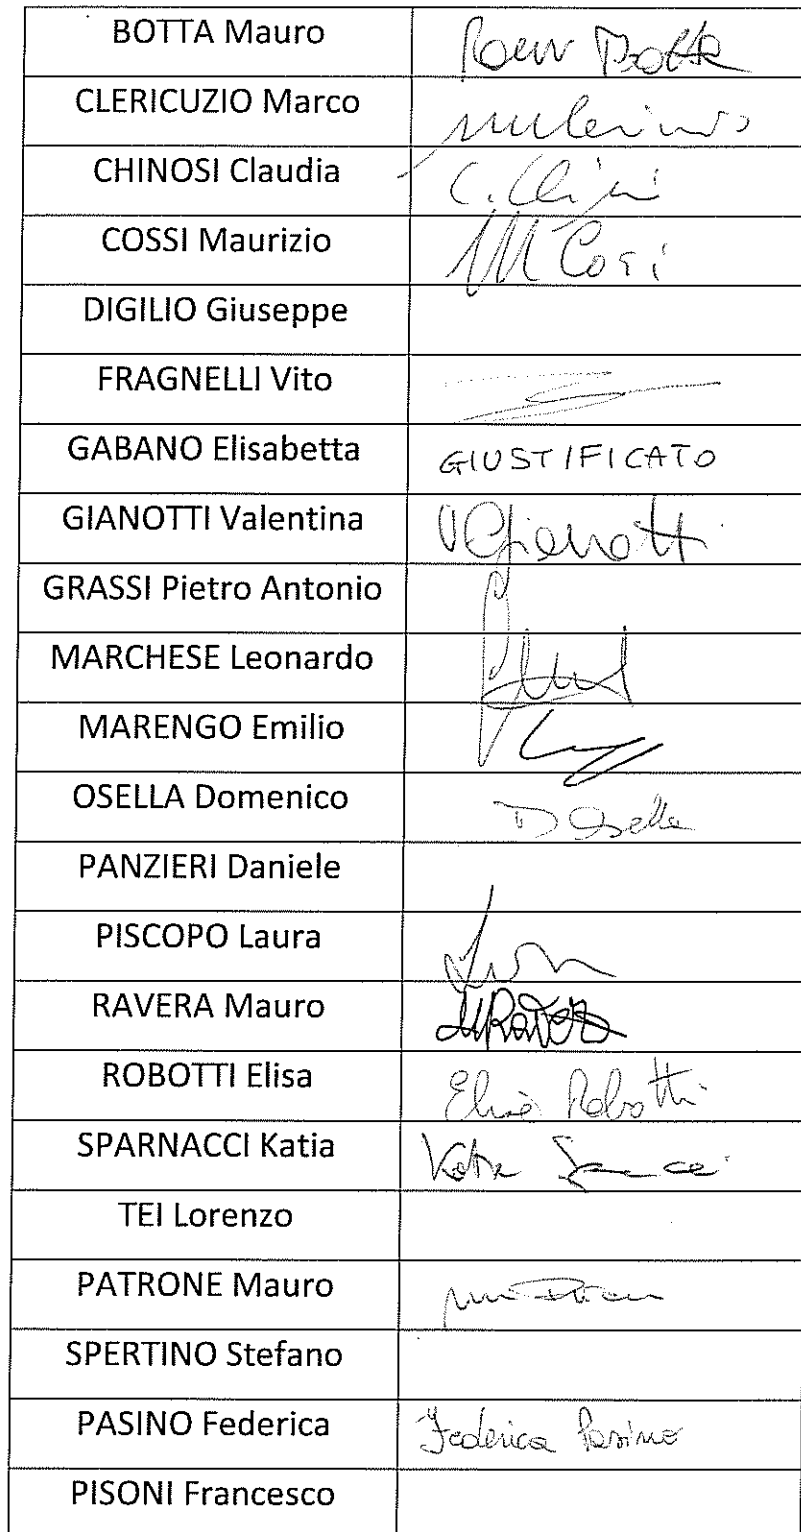 BOTTA Mauro Botta
CLERICUZIO Marco
CHINOSI Claudia C.
COSSI Maurizio M Cossi
DIGILIO Giuseppe
FRAGNELLI Vito
GABANO Elisabetta GIUSTIFICATO
GIANOTTI Valentina VGianotti
GRASSI Pietro Antonio
MARCHESE Leonardo
MARENGO Emilio
OSELLA Domenico D Osella
PANZIERI Daniele
PISCOPO Laura
RAVERA Mauro MRavera
ROBOTTI Elisa Elisa Robotti
SPARNACCI Katia Katia
TEI Lorenzo
PATRONE Mauro
SPERTINO Stefano
PASINO Federica Federica Pasino
PISONI Francesco